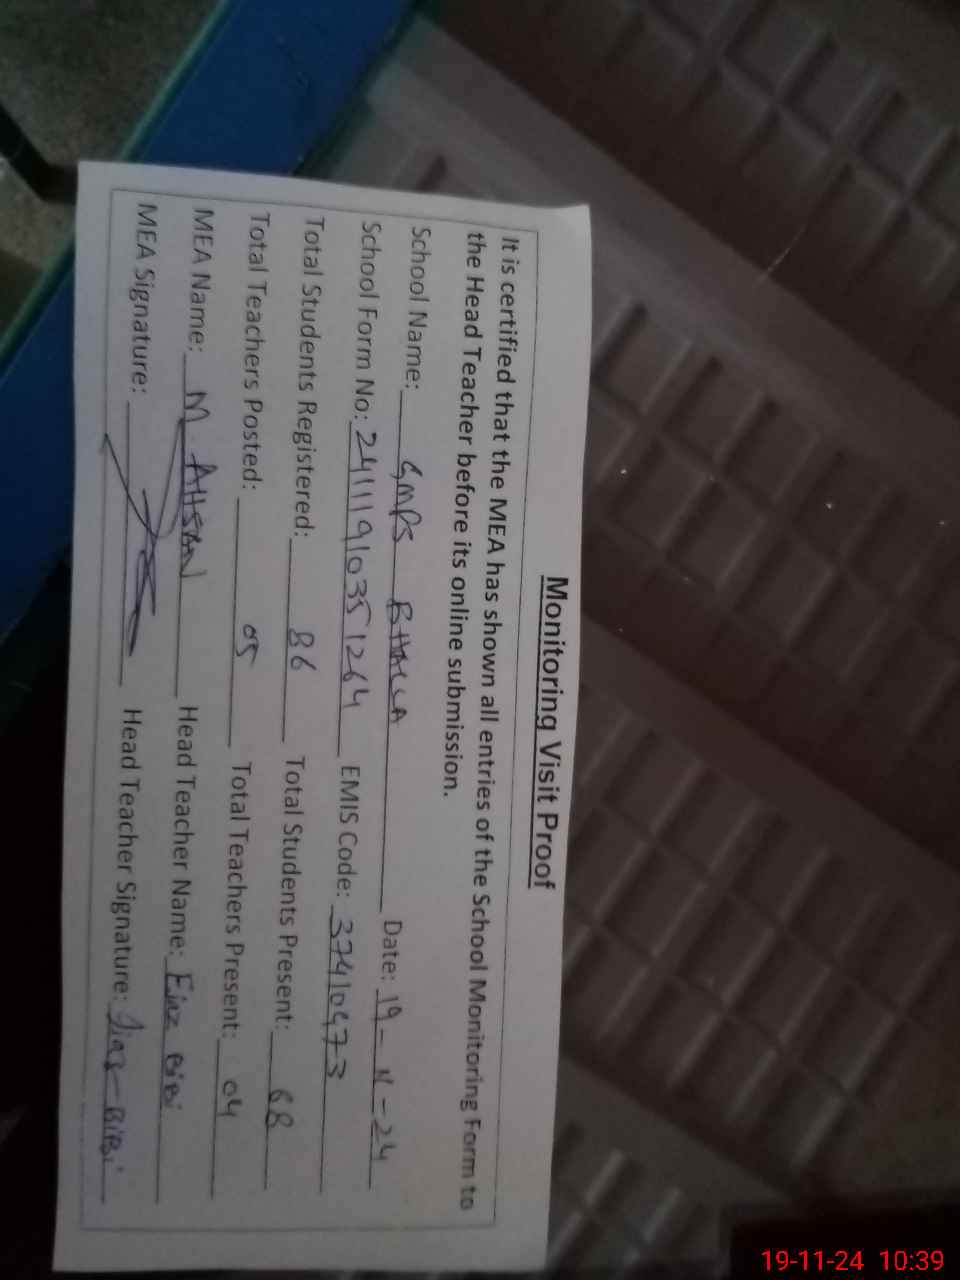 Monitoring Visit Proof
It is certified that the MEA has shown all entries of the School Monitoring Form to
the Head Teacher before its online submission.
School Name: GMPS BHALLA Date: 19-11-24
School Form No: 24111910351264 EMIS Code: 37410473
Total Students Registered: 86 Total Students Present: 68
Total Teachers Posted: 05 Total Teachers Present: 04
MEA Name: M AHSAN Head Teacher Name: Ejaz Bibi
MEA Signature: Head Teacher Signature: Bibi
19-11-24 10:39